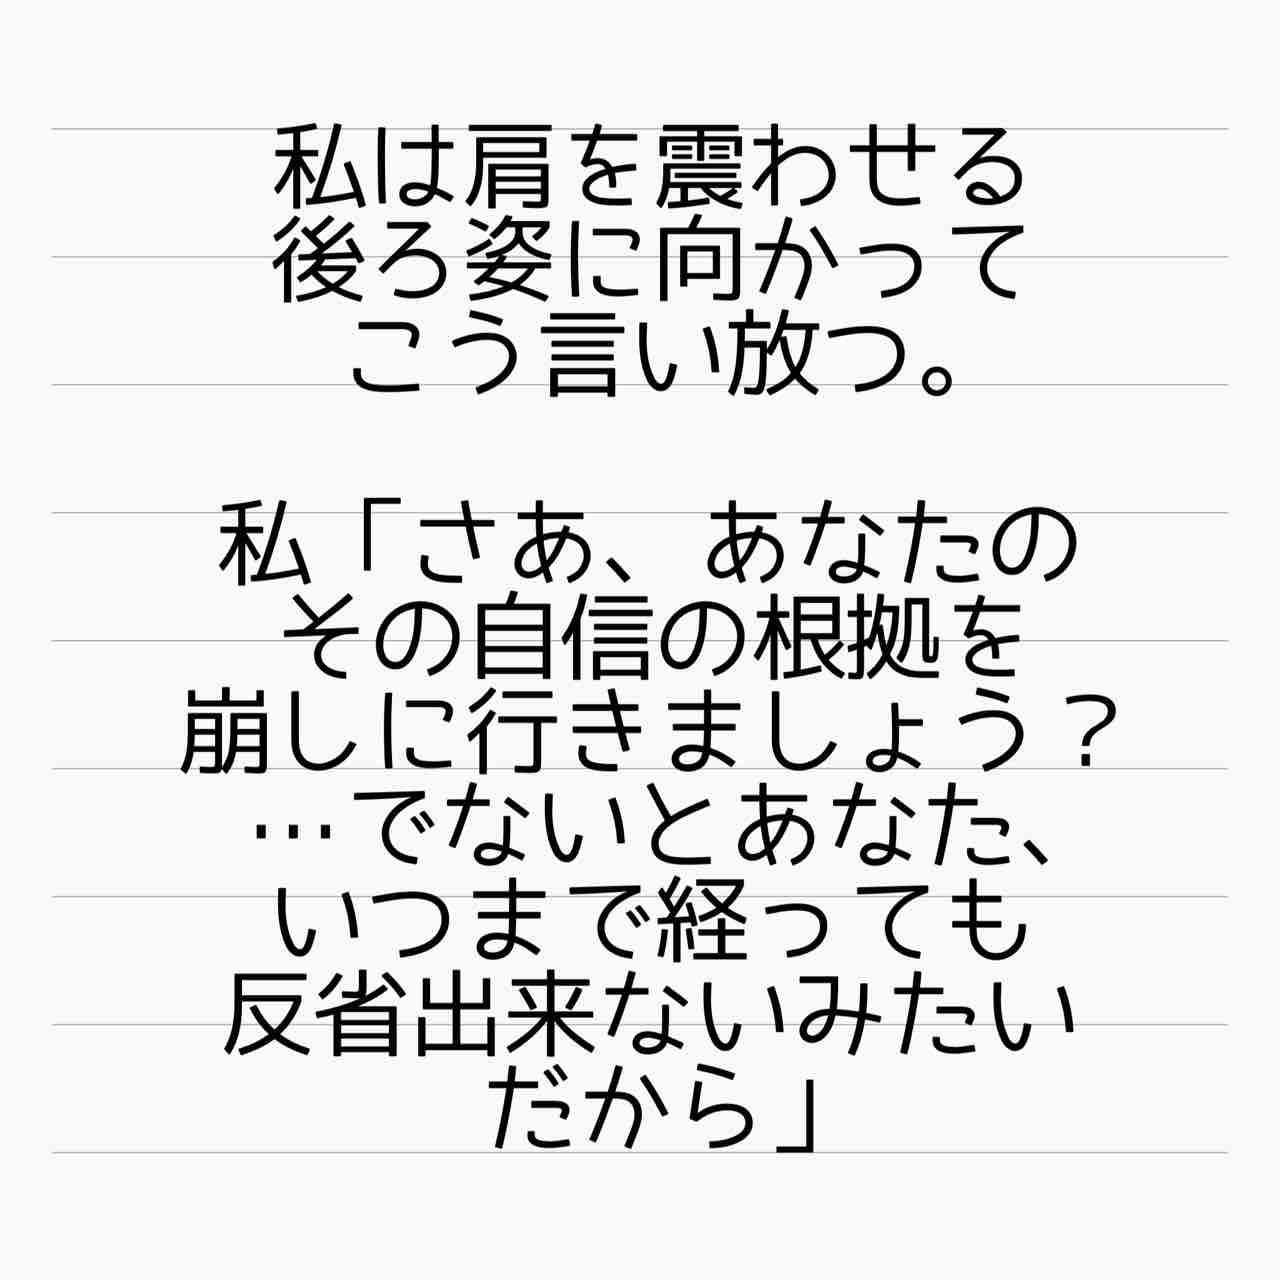 私は肩を震わせる
後ろ姿に向かって
こう言い放つ。
私「さあ、あなたの
その自信の根拠を
崩しに行きましょう？
…でないとあなた、
いつまで経っても
反省出来ないみたい
だから」